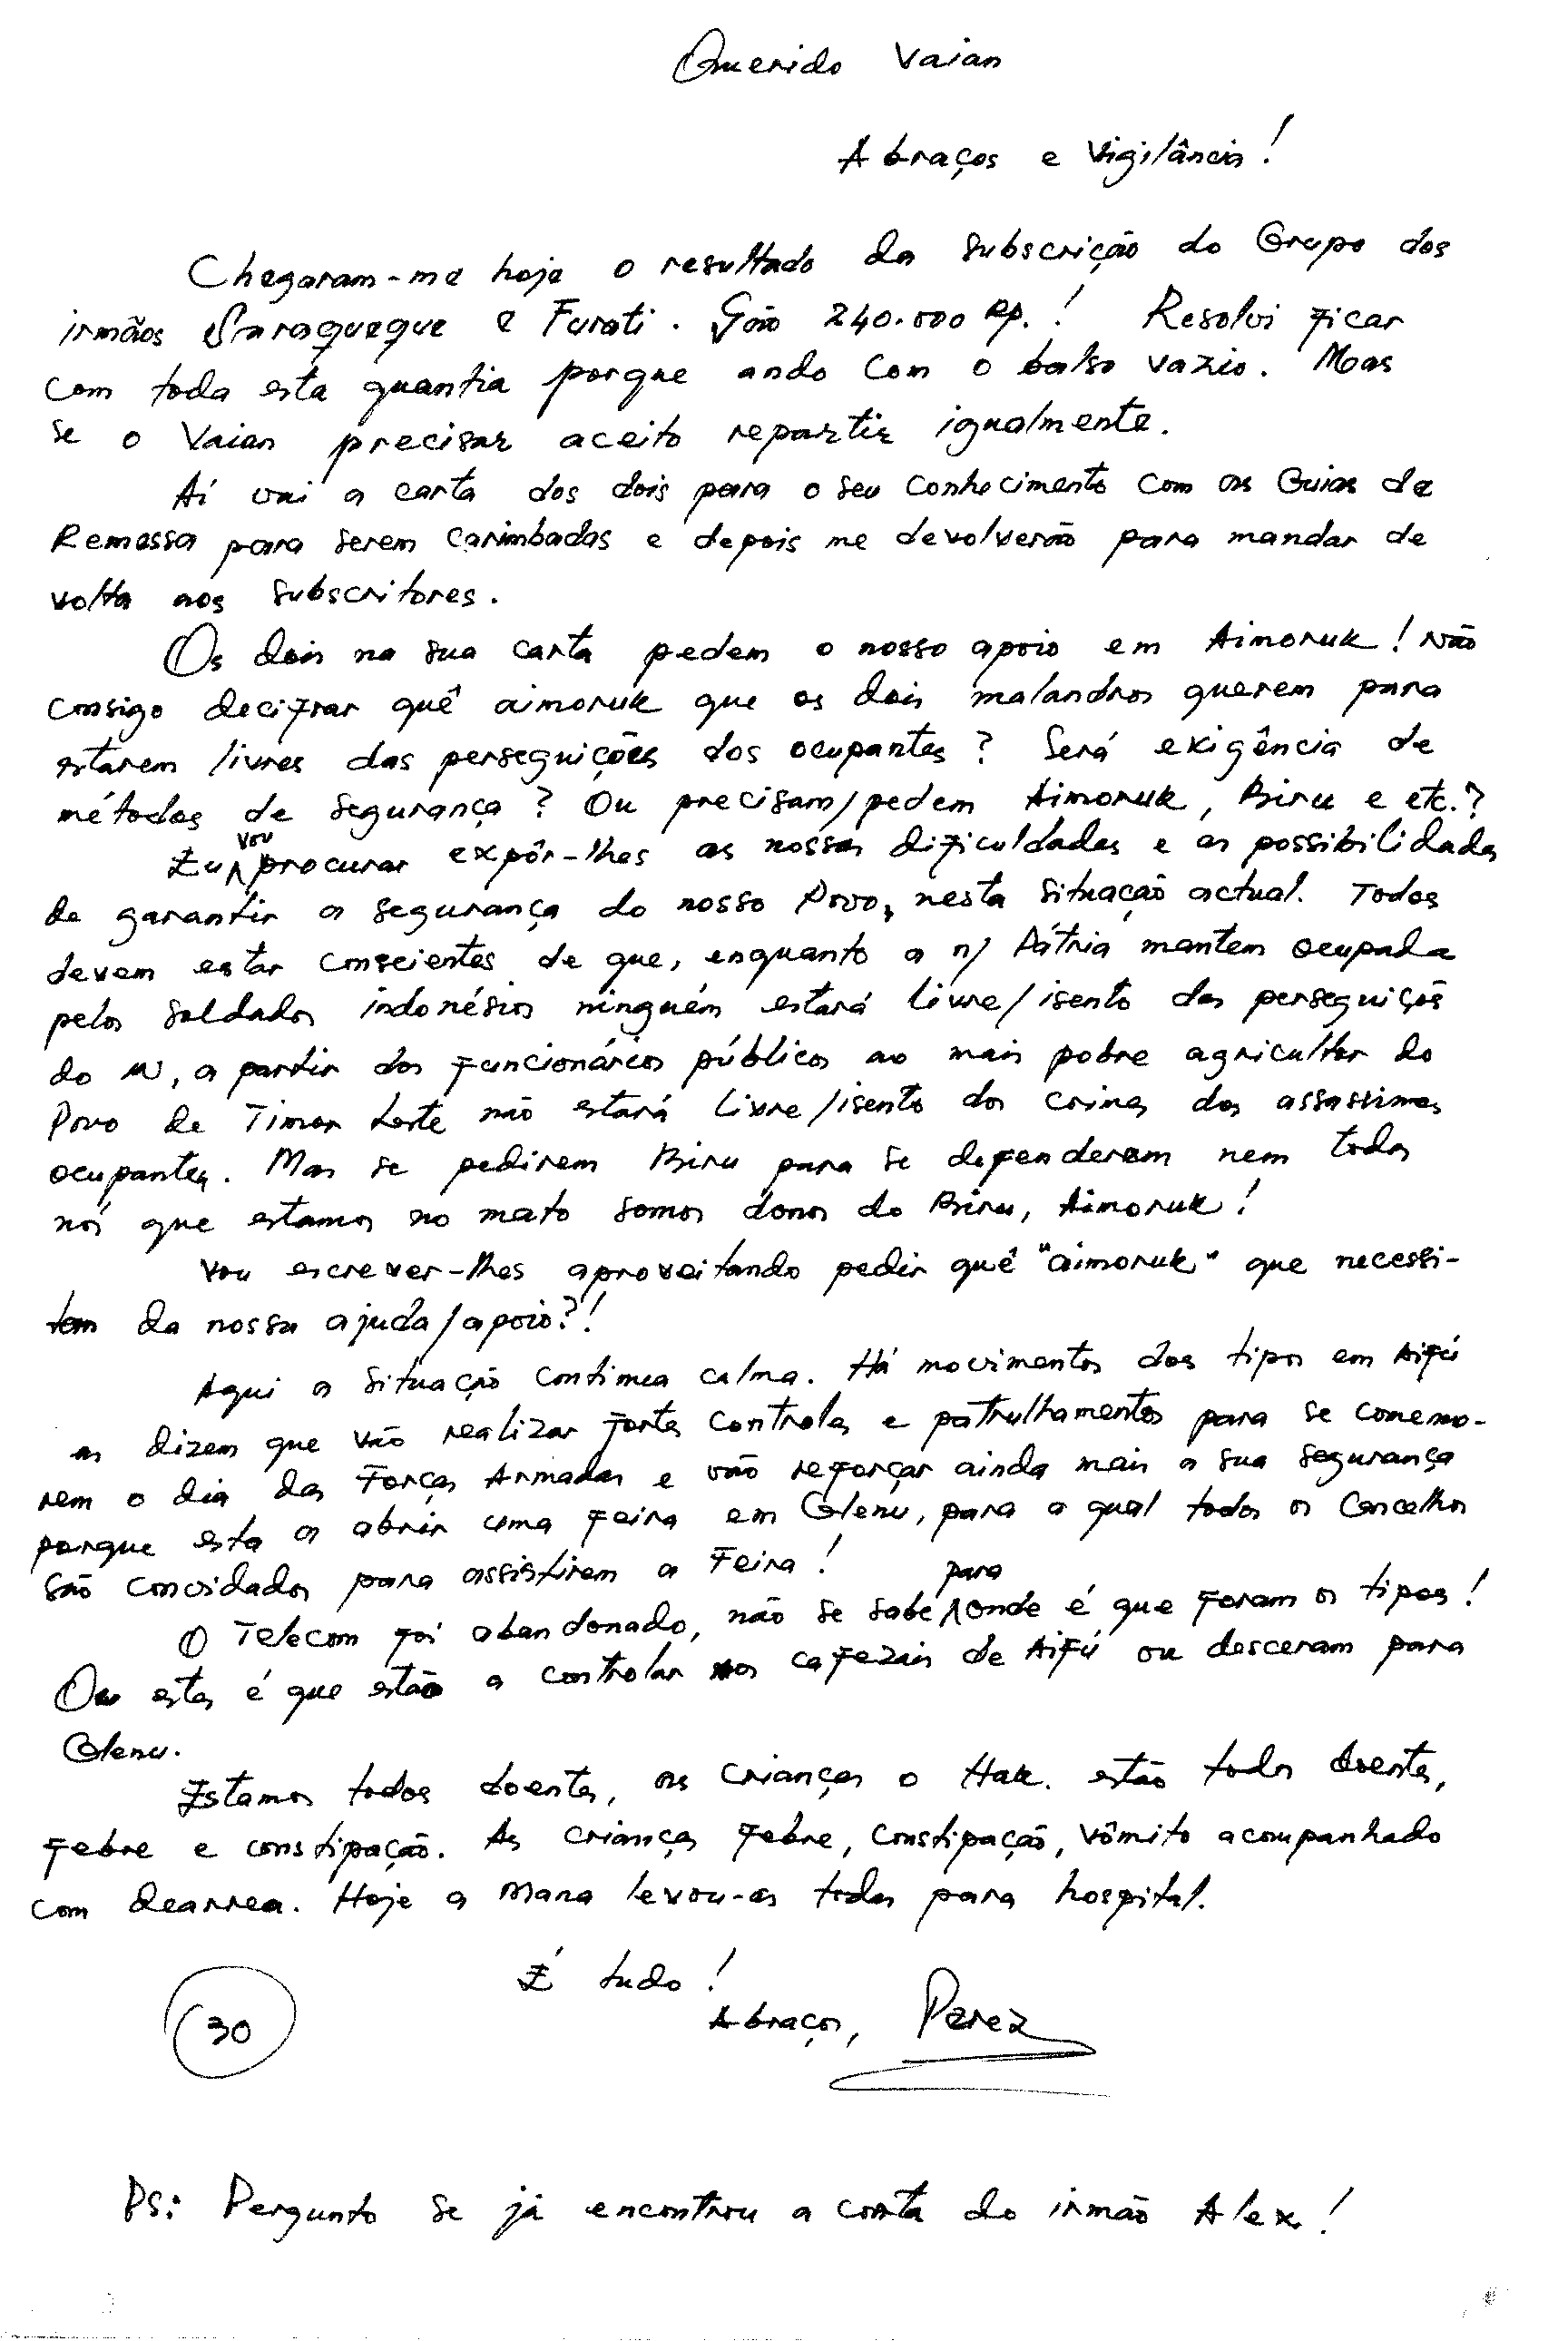 Querido Vaian
Abraços e Vigilância!
Chegaram-me hoje o resultado da subscrição do Grupo dos
irmãos Saraqueque e Furati. São 240.000 Rp.! Resolvi ficar
com toda esta quantia porque ando com o bolso vazio. Mas
se o Vaian precisar aceito repartir igualmente.
Aí vai a carta dos dois para o seu conhecimento com as Guias de
Remessa para serem carimbadas e depois me devolverão para mandar de
volta aos subscritores.
Os dois na sua carta pedem o nosso apoio em Aimoruk! Não
consigo decifrar quê aimoruk que os dois malandros querem para
estarem livres das perseguições dos ocupantes? Será exigência de
métodos de segurança? Ou precisam/pedem Aimoruk, Biru e etc.?
Eu vou procurar expôr-lhes as nossas dificuldades e as possibilidades
de garantir a segurança do nosso Povo, nesta situação actual. Todos
devem estar conscientes de que, enquanto a n/ Pátria mantem ocupada
pelos soldados indonésios ninguém estará livre/isento das perseguições
do IN, a partir dos funcionários públicos ao mais pobre agricultor do
Povo de Timor Leste não estará livre/isento dos crimes dos assassinos
ocupantes. Mas se pedirem Biru para se defenderem nem todos
nós que estamos no mato somos donos do Biru, Aimoruk!
Vou escrever-lhes aproveitando pedir quê "aimoruk" que necessi-
tam da nossa ajuda/apoio?!
Aqui a situação continua calma. Há movimentos dos tipos em Aifú
as dizem que vão realizar fortes controles e patrulhamentos para se comemo-
rem o dia das Forças Armadas e vão reforçar ainda mais a sua segurança
porque esta a abrir uma feira em Glenu, para a qual todos os Concelhos
são convidados para assistirem a Feira!
O Telecom foi abandonado, não se sabe para onde é que foram os tipos!
Ou estes é que estão a controlar nos cafezais de Aifú ou desceram para
Glenu.
Estamos todos doentes, as crianças o Hak. estão todos doentes,
febre e constipação. As crianças febre, constipação, vômito acompanhado
com dearrea. Hoje a Mana levou-as todas para hospital.
É tudo!
Abraços, Perez
30
PS: Pergunto se já encontrou a carta do irmão Alex!